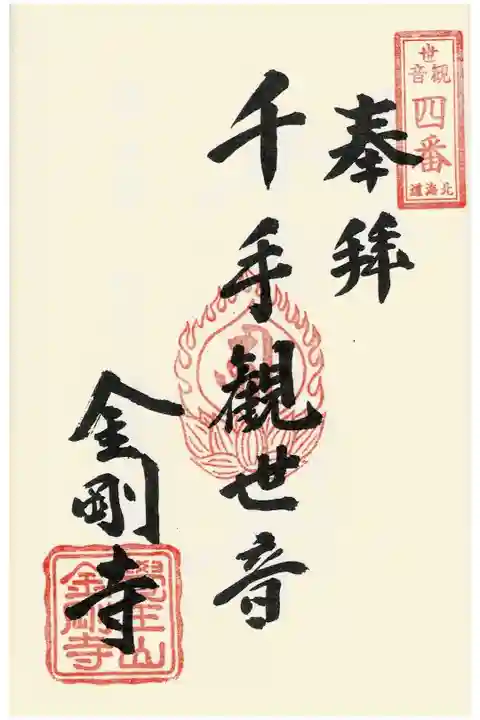 観世音
四番
北海道
奉拝
千手観世音
金剛寺
覺王山
金剛寺